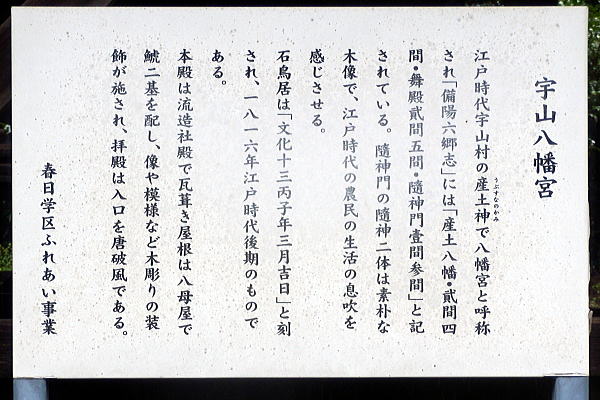 宇山八幡宮
江戸時代宇山村の産土神で八幡宮と呼称
うぶすなのかみ
され「備陽六郷志」には「産土八幡・貳間四
間・舞殿貳間五間・隨神門壹間参間」と記
されている。隨神門の隨神二体は素朴な
木像で、江戸時代の農民の生活の息吹を
感じさせる。
石鳥居は「文化十三丙子年三月吉日」と刻
され、一八一六年江戸時代後期のもので
ある。
本殿は流造社殿で瓦葺き屋根は八母屋で
鯱二基を配し、像や模様など木彫りの装
飾が施され、拝殿は入口を唐破風である。
春日学区ふれあい事業